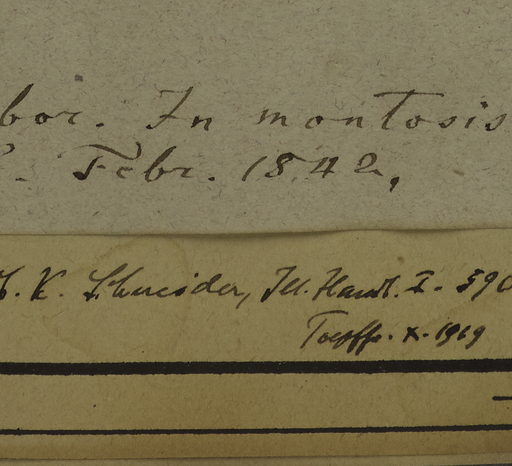 bor. In montosis
Febr. 1842,
K. Schneider, Ill. Handb. I. 590
Toepffr. X. 1919